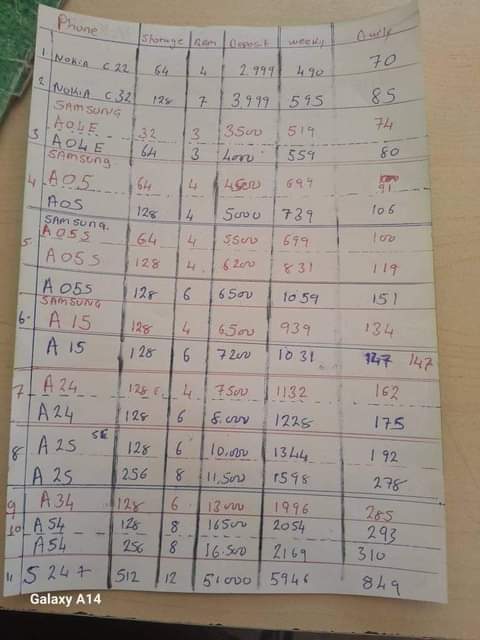 Phone Storage Ram Deposit weekly Daily
1 Nokia C22 64 4 2,999 490 70
2 Nokia C32 128 7 3,999 595 85
SAMSUNG
A04E 32 3 3500 519 74
3 A04E 64 3 4000 559 80
SAMSUNG
4 A05 64 4 4500 91
A05 128 4 5000 739 106
SAMSUNG.
5 A05S 64 4 5500 699 100
A05S 128 4 6200 831 119
A05S 128 6 6500 1059 151
SAMSUNG
6 A15 128 4 6500 939 134
A15 128 6 7200 1031 147 147
7 A24 128 4 7500 1132 162
A24 128 6 8,000 1228 175
8 A25 5G 128 6 10,000 1344 192
A25 256 8 11,500 1598 278
9 A34 128 6 13000 1996 285
10 A54 128 8 16500 2054 293
A54 256 8 16,500 2169 310
11 S24+ 512 12 51000 5946 849
Galaxy A14